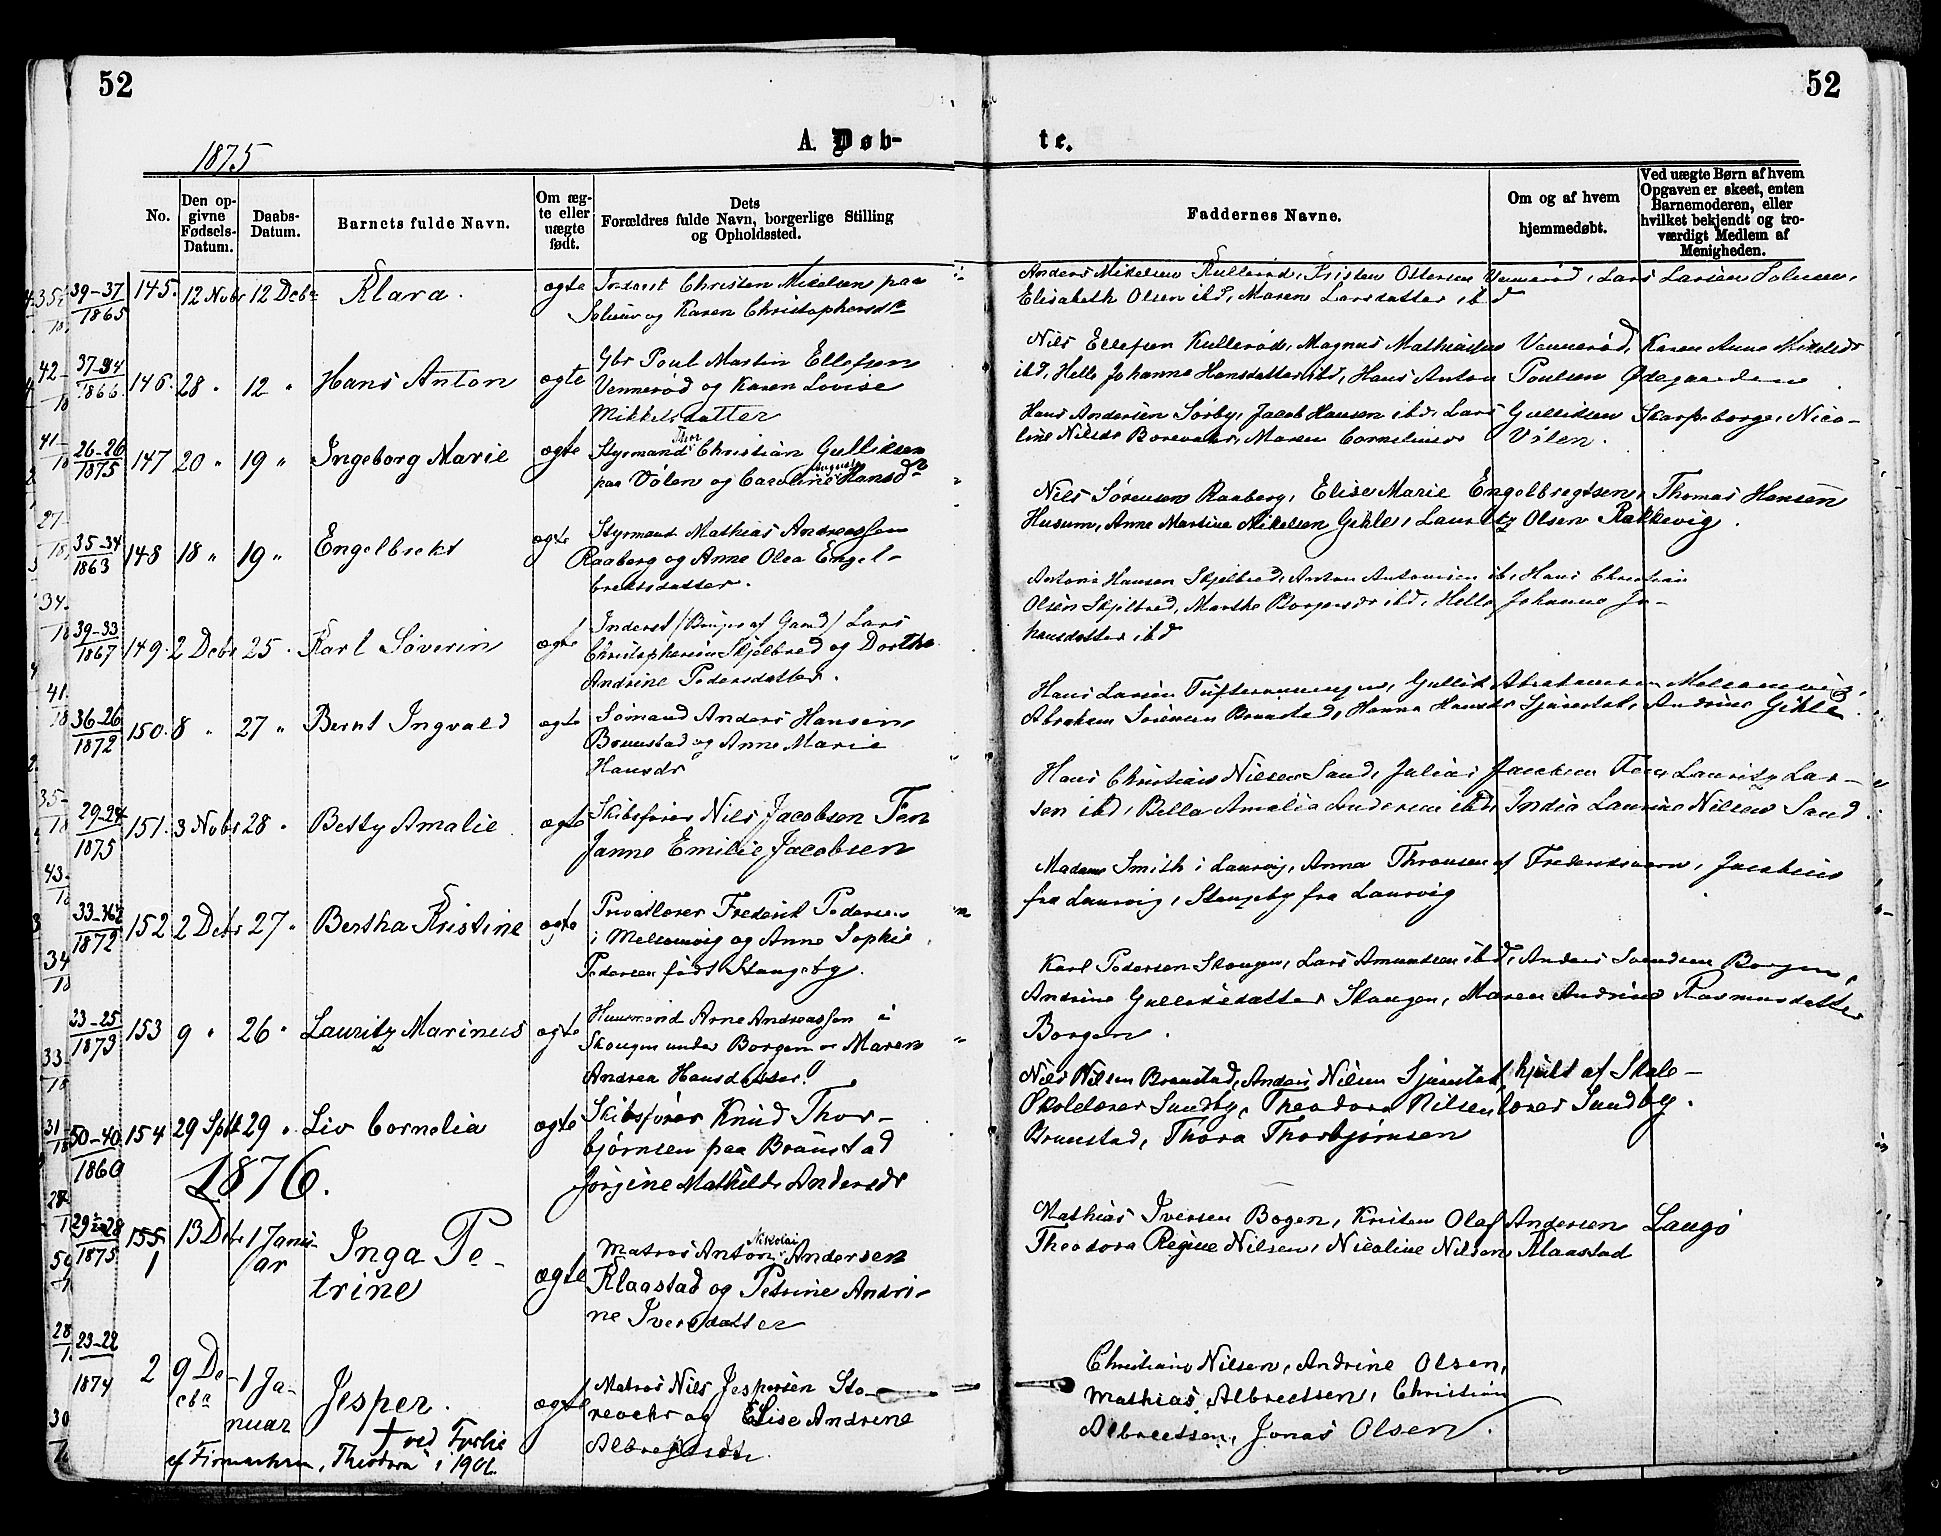 52
52
A. Døb-
te.
1875
No.
Den op-
givne
Fødsels-
Datum.
Daabs-
Datum.
Barnets fulde Navn.
Om æg-
te eller
uægte
født.
Dets
Forældres fulde Navn, borgerlige Stilling
og Opholdssted.
Faddernes Navne.
Om og af hvem
hjemmedøbt.
Ved uægte Børn af hvem
Opgaven er skeet, enten
Barnemoderen, eller
hvilket bekjendt og tro-
værdigt Medlem af
Menigheden.
39-37
1865
145. 12 Nobr 12 Debr Klara. ægte
Christen Mikelsen paa
Solum og Karen Christophersdtr
Anders Mikelsen Kullerød, Kristen Ottersen Vennerød, Lars Larsen Solum,
Elisabeth Olsen ibd, Maren Larsdatter ibd
37-34
1866
146. 28 " 12 " Hans Anton ægte
Gbr Poul Martin Ellefsen
Vennerød og Karen Lovise
Mikkelsdatter
Nils Ellefsen Kullerød, Magnus Mathiassen Vennerød, Karen Anne
ibd, Helle Johanne Hansdatter ibd, Hans Anton Poulsen Ødegaarden
26-26
1875
147 20 " 19 " Ingeborg Marie ægte
Thor
Styrmand Christian Gulliksen
Auguste
paa Vølen og Caroline Hansdr
Hans Andersen Sørby, Jacob Hansen ibd, Lars Gulliksen Skarpeborge, Nico-
line Nilsdr Borevaar, Maren Corneliusdr Vølen.
35-34
1863
148 18 " 19 " Engelbrekt ægte
Styrmand Mathias Andreassen
Raaberg og Anne Olea Engel-
brektsdatter.
Nils Sørensen Raaberg, Elise Marie Engelbregtsen, Thomas Hansen
Husum, Anne Martine Mikelsen Gihle, Lauritz Olsen Rakkevig.
39-33
1867
149. 2 Debr 25 " Karl Søverin ægte
Inderst /Bruger af Gaard/ Lars
Christophersen Skjelbred og Dorthe
Andrine Pedersdatter.
Hansen Skjelbred, Anton Antonisen ib, Hans Christian
Olsen Skjelbred, Marthe Borgersdr ibd, Helle Johanne Jo-
hansdatter ibd
36-26
1872
150. 8 " 27 " Bernt Ingvald ægte
Sømand Anders Hansen
Brunstad og Anne Marie
Hansdr
Hans Larsen Gullik Abrahamsen Melsomvig,
Abraham Sørensen Brunstad, Hanna Hansdr Sjuestok, Andrine Gihle
29-24
1875
151. 3 Nobr 28 " Betty Amalie ægte
Skibsfører Nils Jacobsen Fen
Janne Emilie Jacobsen
Hans Christian Nielsen Sand, Julius Jacobsen Fen, Lauritz Lar-
sen ibd, Bella Amalia Andersen ibd, India Laurine Nilsen Sand.
1872
152 2 Debr 27 " Bertha Kristine ægte
Privatlærer Frederik Pedersen
i Melsomvig og Anne Sophie
Pedersen født Stangeby.
Madam Smith i Laurvig, Anna Thronsen af Frederiksværn, Jacobsen
fra Laurvig, Stangeby fra Laurvig
23-25
1873
153 9 " 26 " Lauritz Marinus ægte
Huusmand Arne Andreassen i
Skougen under Borgen - Maren
Andrea Hansdatter.
Karl Pedersen Skougen, Lars Amundsen ibd, Anders Svendsen Borgen,
Andrine Gulliksdatter Skougen, Maren Andrine Rasmusdatter
Borgen.
50-40
1860
154 29 Sptb 29 " Liv Cornelia ægte
Skibsfører Knud Thor-
bjørnsen paa Brunstad
Jørgine Mathilde Andersdr
Nils Nilsen Brunstad, Anders Nilsen Sjuestok, hjdt af Skole-
Skolelærer Sundby, Theodora Nilsen lærer Sundby.
Brunstad, Thora Thorbjørnsen
1876.
29-28
1875
155 13 Debr 1 Janu-
1 ar Inga Pe-
trine ægte
Nikolai
Matros Anton Andersen
Klaastad og Petrine Andri-
ne Iversdatter
Mathias Iversen Bogen, Kristen Olaf Andersen Langø
Theodora Regine Nilsen, Nicoline Nilsen Klaastad
23-22
1874
2 9 De-
cbr 1 Ja-
nuar Jesper. ægte
Matros Nils Jespersen Sto-
revahr og Elise Andrine
Albregtsdtr
Christian Nilsen, Andrine Olsen,
Mathias Albrectsen, Christian
Albrectsen, Jonas Olsen.
† ved Forlis
af "Theodora" i 1901.